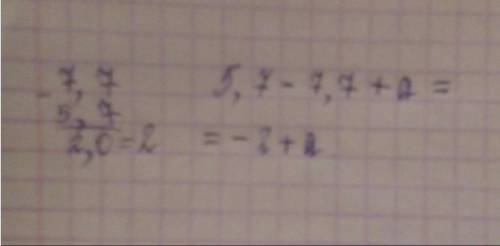 - 7,7
5,7
2,0 = 2
5,7 - 7,7 + a =
= - 2 + a